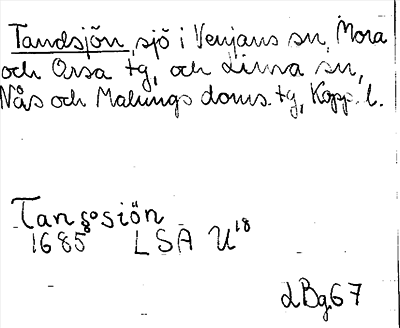 Tandsjön, sjö i Venjans sn, Mora
och Orsa tg, och Lima sn,
Nås och Malungs doms. tg, Kopp. l.
Tanssosiön
1685 LSA U18
LBg 67